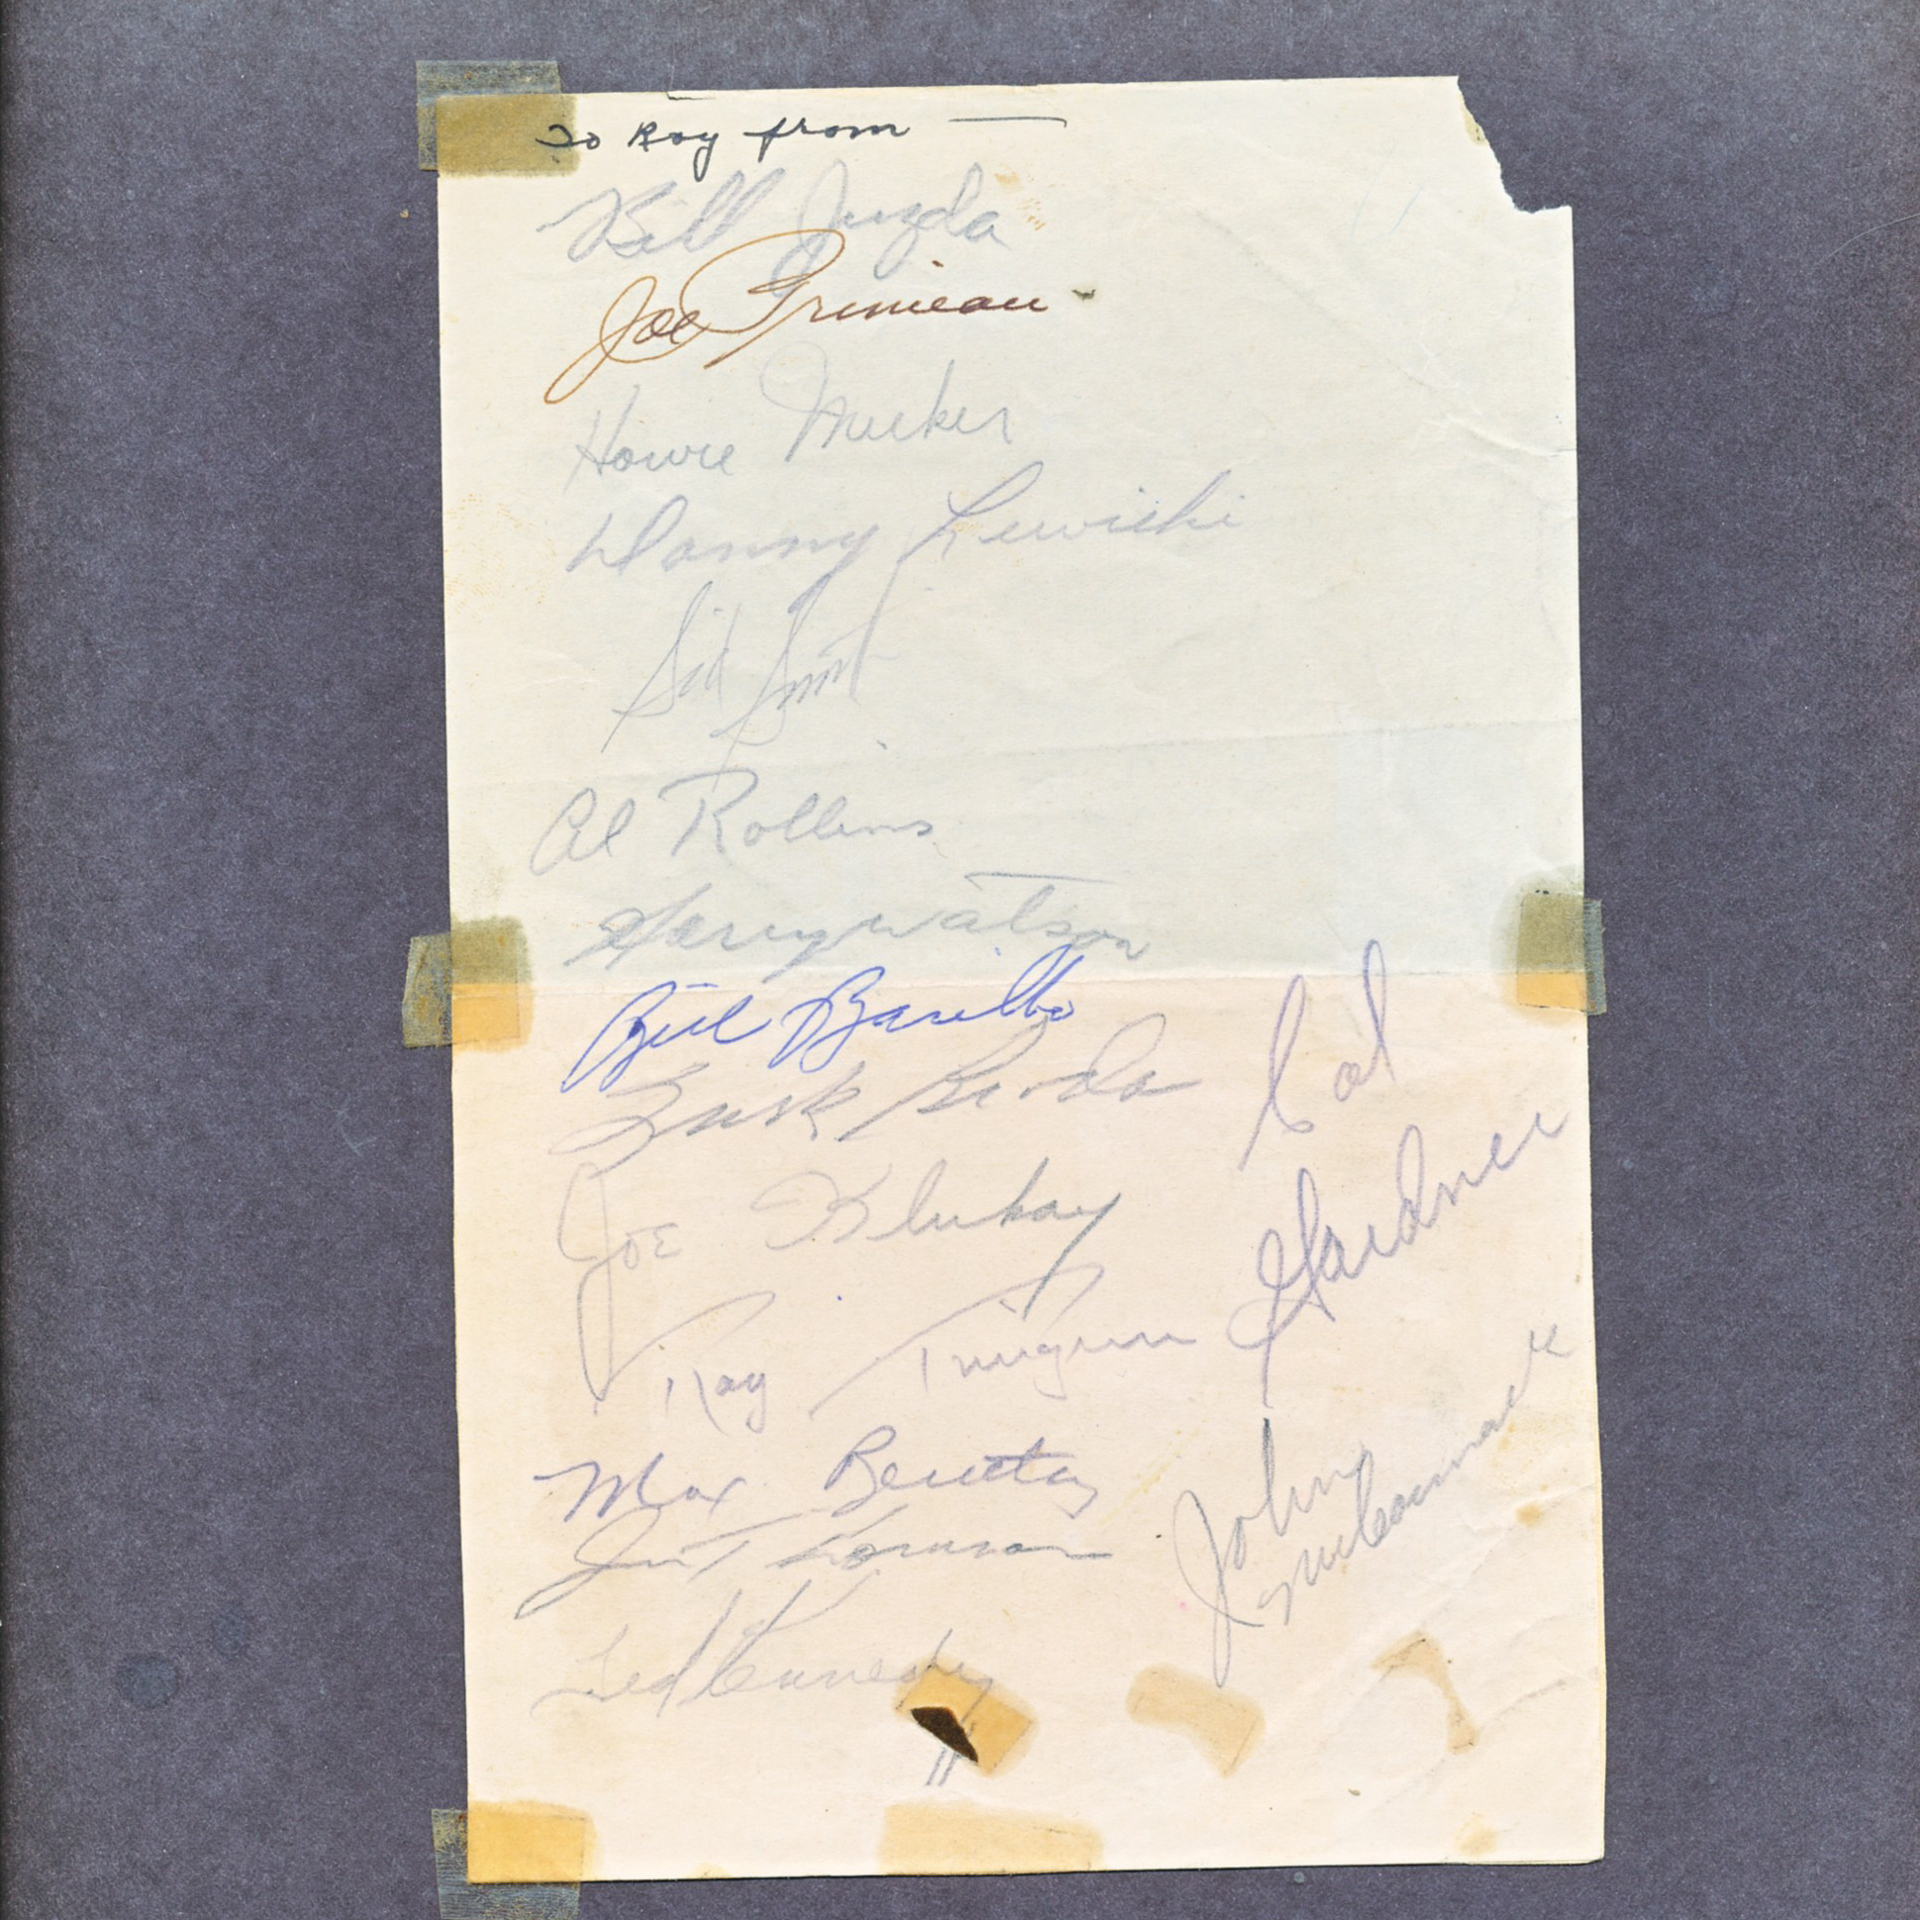 To Roy from —
Bill Juzda
Joe Primeau
Howie Meeker
Danny Lewicki
Sid Smith
Al Rollins
Harry Watson
Bill Barilko
Turk Broda
Joe Klukay
Ray Timgren
Max Bentley
Jim Thomson
Ted Kennedy
Cal
Gardner
John
McCormack